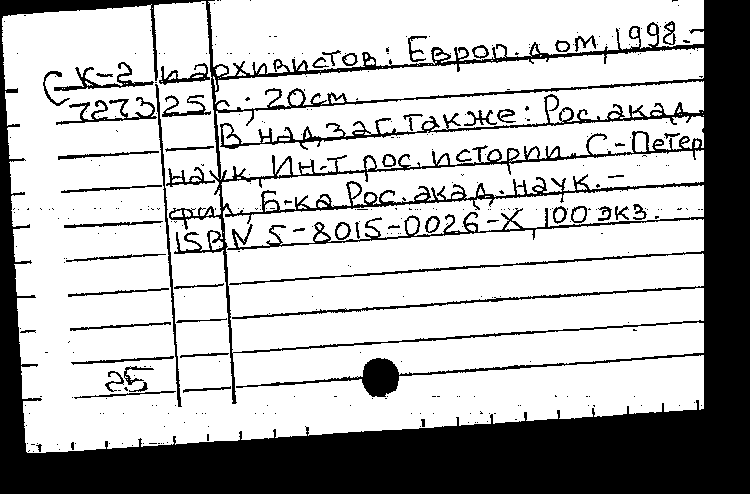 С К-2 и архивистов: Европ. дом, 1998.-
7273 25 с.; 20 см.
В надзаг. также: Рос. акад.
наук, Ин-т рос. истории. С.-Петер
фил., Б-ка Рос. акад. наук. -
ISBN 5-8015-0026-X, 100 экз.
25